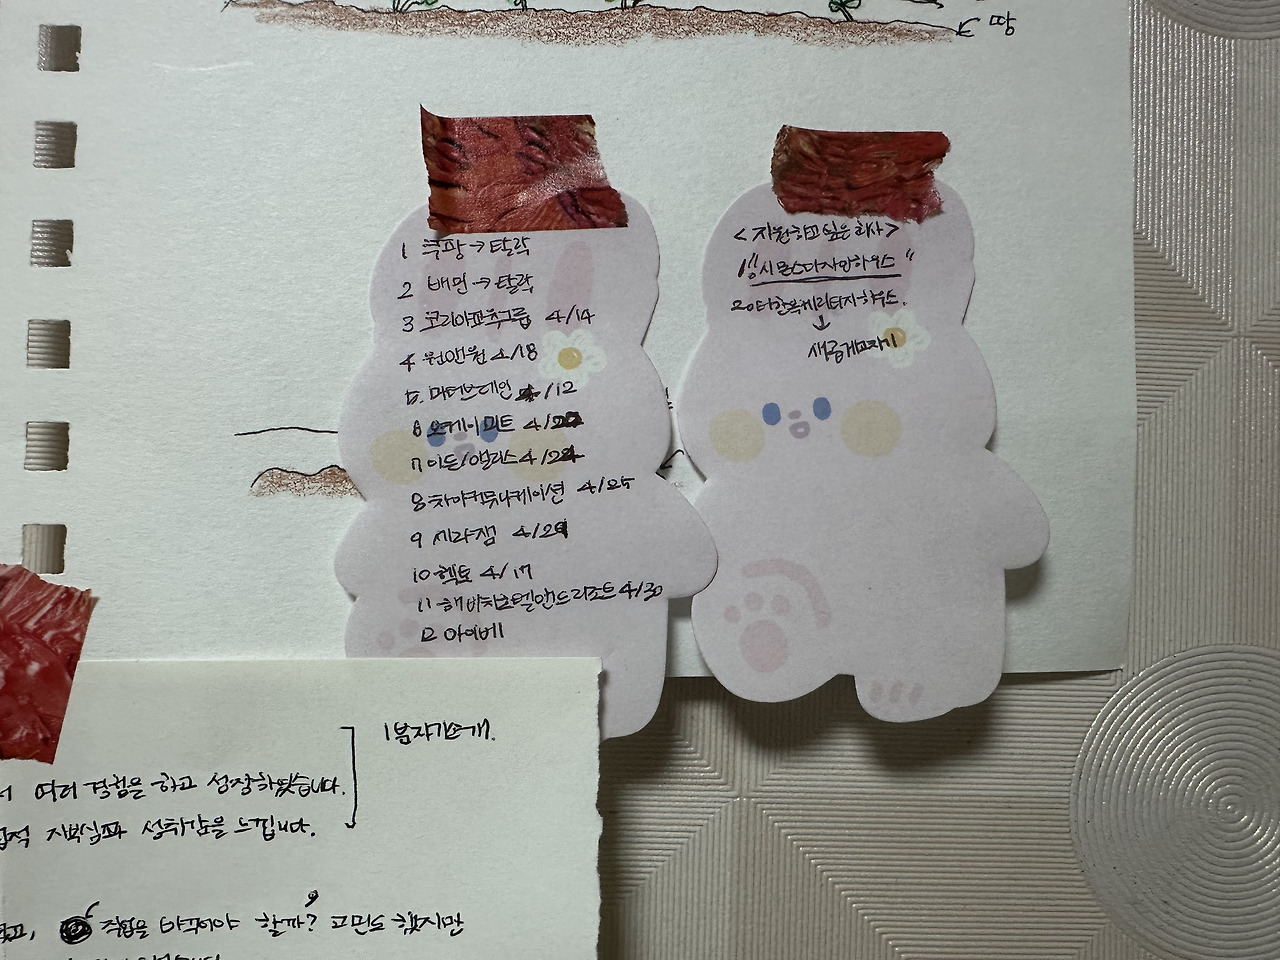 땅
1 쿠팡 → 탈락
2 배민 → 탈락
3 코리아교육그룹 4/14
4 원앤원 4/18
5. 마더브레인 4/12
6 오케이미트 4/22
7 이든/앨리스 4/24
8 차이커뮤니케이션 4/25
9 세라잼 4/29
10 헥토 4/17
11 해비치호텔앤드리조트 4/30
12 아이베
<지원하고 싶은 회사>
1 "시몬스디자인하우스"
2. 더한옥헤리티지하우스.
↓
새롭게고치기
1분자기소개.
서 여러 경험을 하고 성장하였습니다.
자부심과 성취감을 느낍니다.
직업을 바꾸어야 할까? 고민도 했지만